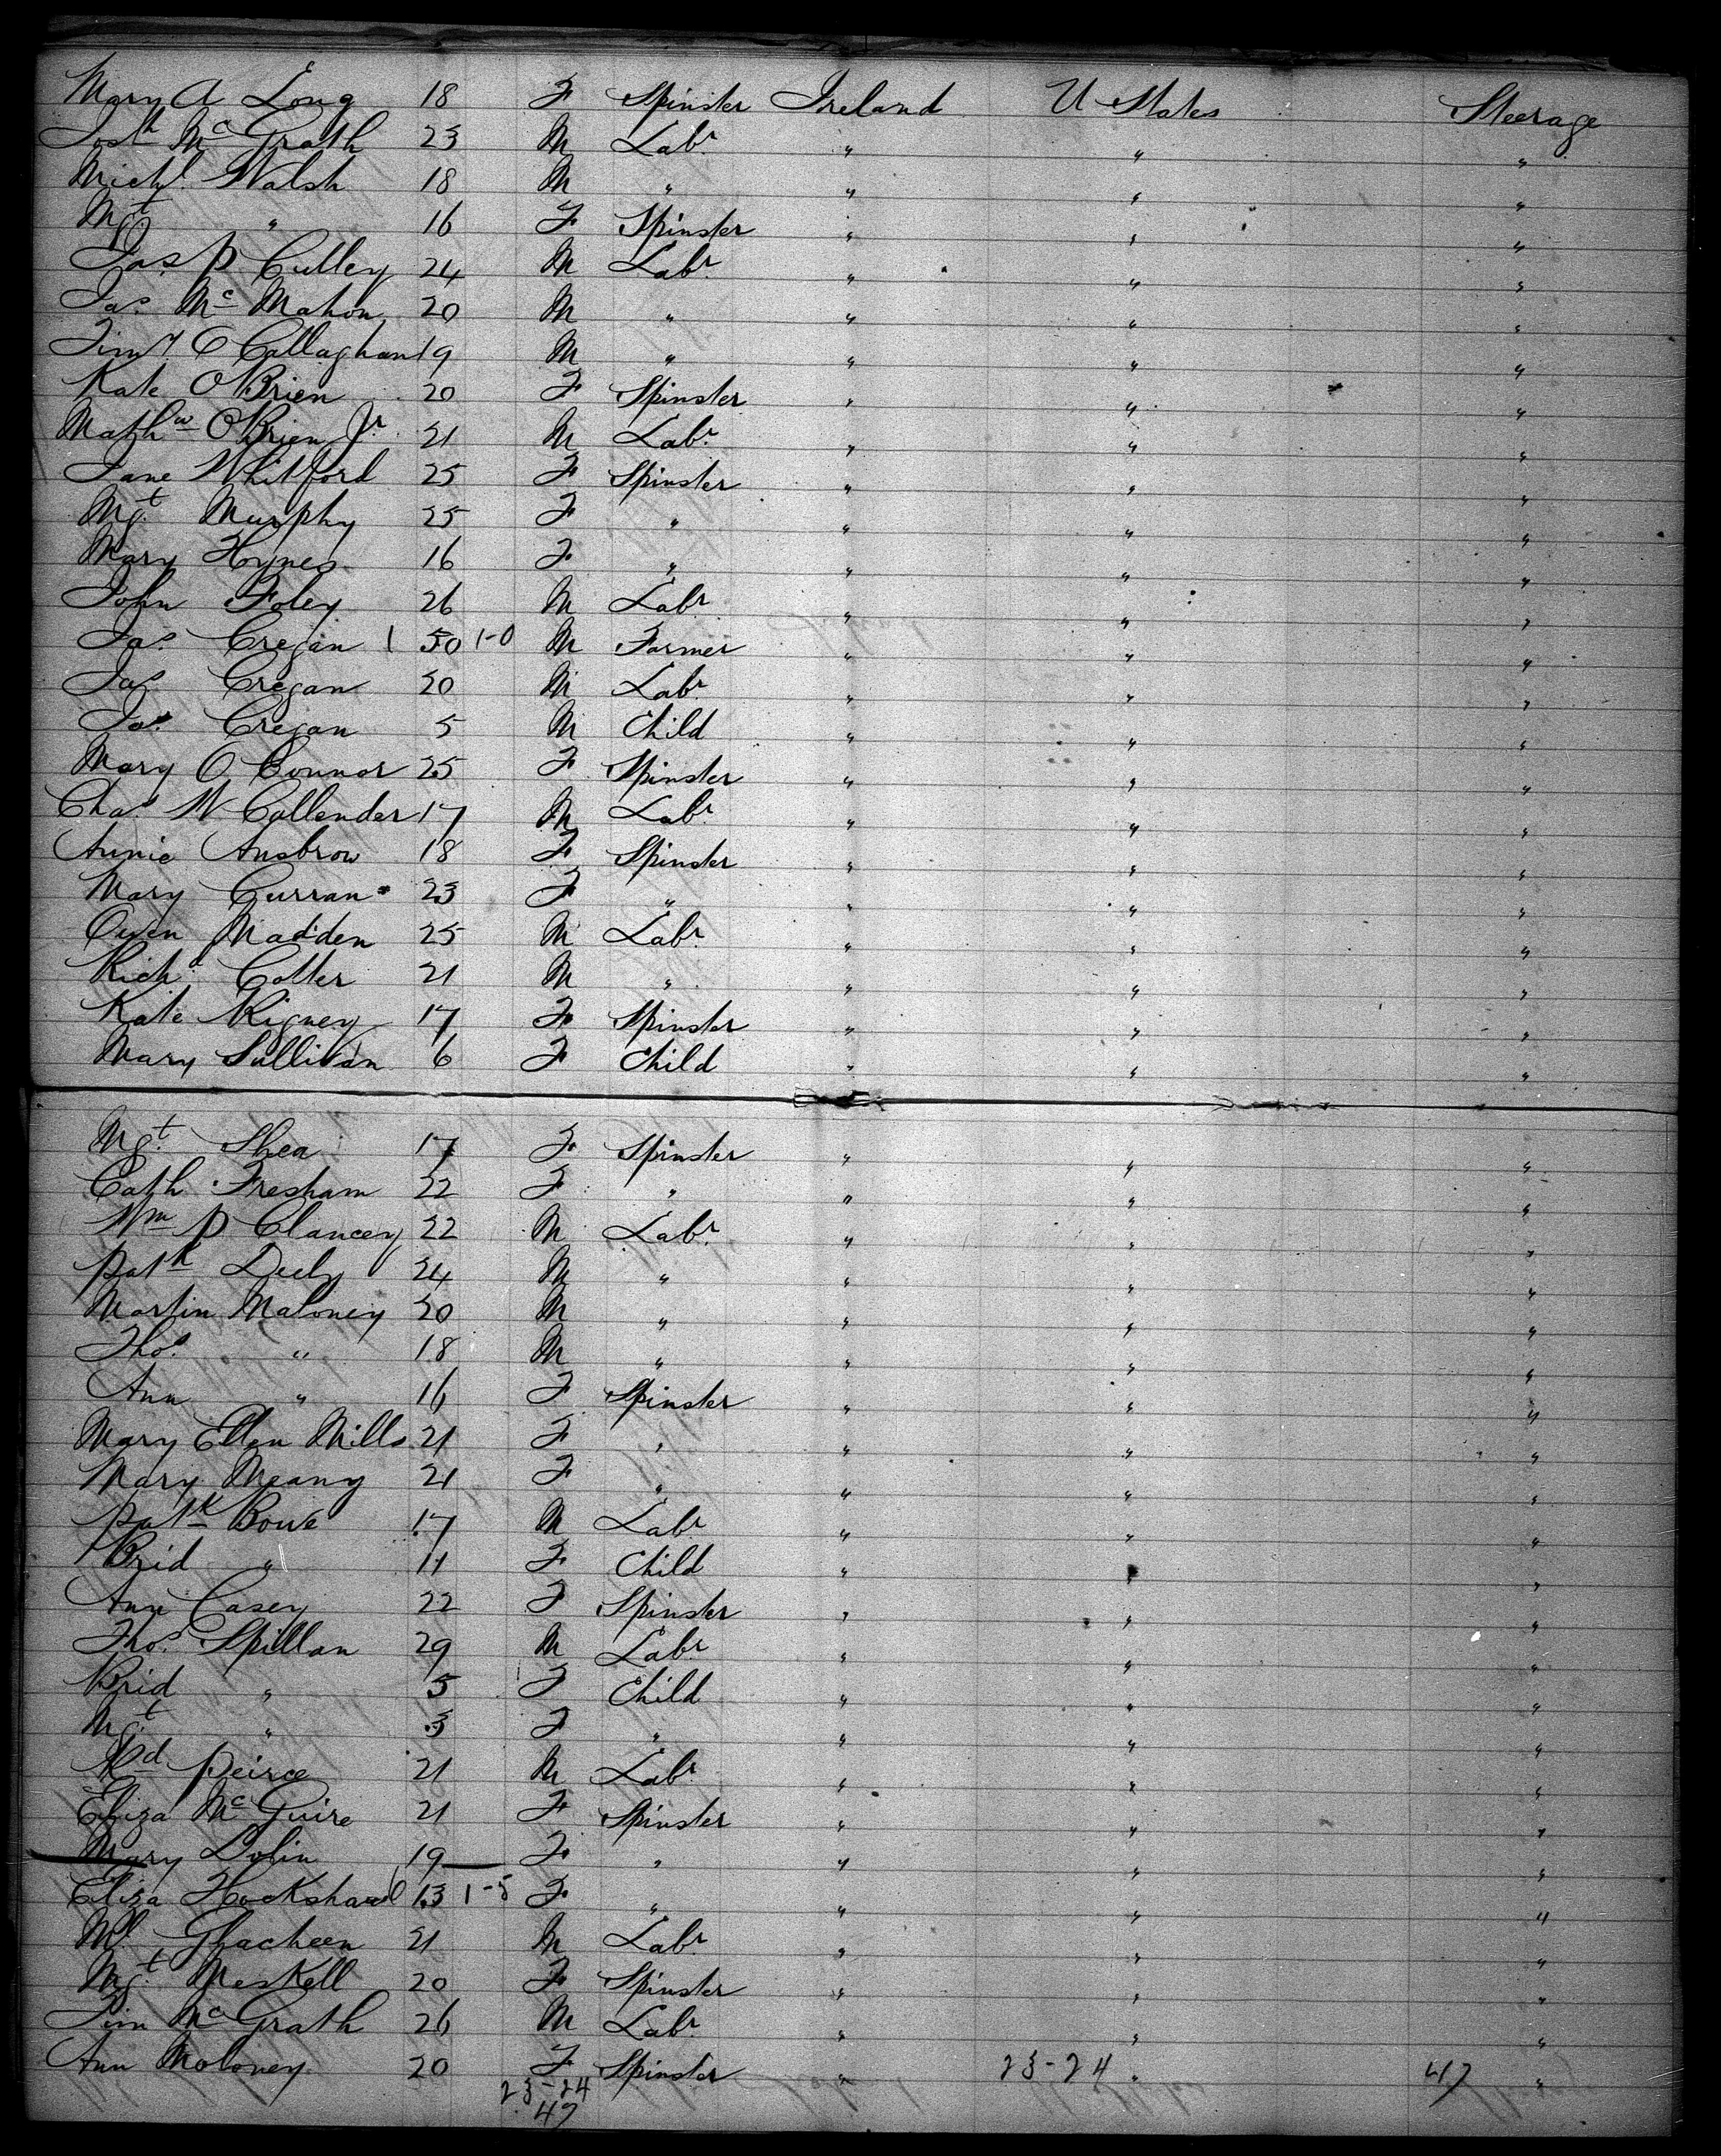 Mary A Long 18 F Spinster Ireland U States Steerage
Josh McGrath 23 M Labr " " "
Michl Walsh 18 M " " " "
Mgt " 16 F Spinster " " "
Jas P Culley 24 M Labr " " "
Jas McMahon 20 M " " " "
Timy O Callaghan 19 M " " " "
Kate O'Brien 20 F Spinster " " "
Mathw O'Brien Jr 21 M Labr " " "
Jane Whitford 25 F Spinster " " "
Mgt Murphy 25 F " " " "
Mary Hynes 16 F " " " "
John Foley 26 M Labr " " "
Jas Cregan 1 50 1-0 M Farmer " " "
Jas Cregan 20 M Labr " " "
Jas Cregan 5 M Child " " "
Mary O Connor 25 F Spinster " " "
Chas W Callender 17 M Labr " " "
Annie Ansbrow 18 F Spinster " " "
Mary Curran 23 F " " " "
Owen Madden 25 M Labr " " "
Richd Cotter 21 M " " " "
Kate Rigney 17 F Spinster " " "
Mary Sullivan 6 F Child " " "
Mgt Shea 17 F Spinster " " "
Cath Fresham 22 F " " " "
Wm P Clancey 22 M Labr " " "
Patk Deely 24 M " " " "
Martin Maloney 20 M " " " "
Thos " 18 M " " " "
Ann " 16 F Spinster " " "
Mary Ellen Mills 21 F " " " "
Mary Meany 21 F " " " "
Patk Bowe 17 M Labr " " "
Brid " 11 F Child " " "
Ann Casey 22 F Spinster " " "
Thos Spillan 29 M Labr " " "
Brid " 5 F Child " " "
Mgt " 3 F " " " "
Rd Peirce 21 M Labr " " "
Eliza McGuire 21 F Spinster " " "
Mary Dolin 19 F " " " "
Eliza 13 1-5 F " " " "
Ml 21 M Labr " " "
Mgt Meskell 20 F Spinster " " "
Tim McGrath 26 M Labr " " "
Ann Moloney 20 F Spinster " 23-24 " 47 "
23-24
47